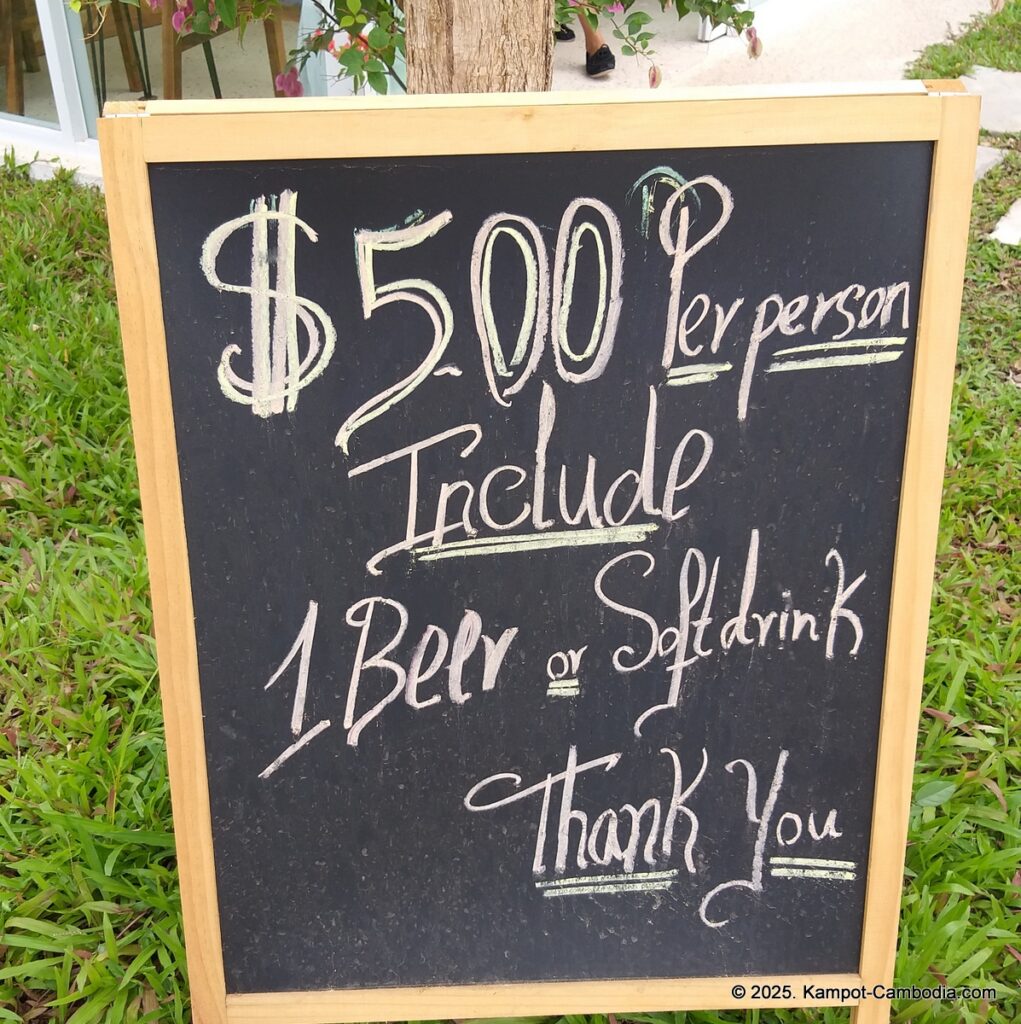 $5.00 Per person
Include
1 Beer or Soft drink
Thank You
© 2025. Kampot-Cambodia.com